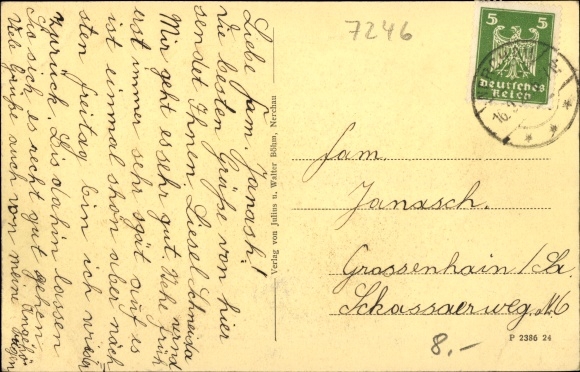 Liebe Fam. Janash!
Die besten Grüße von hier
sendet Ihnen Liesel Schneider
Mir geht es sehr gut. Nehe
und früh
erst immer sehr spät auf es
ist einmal schön aber näch
sten freitag bin ich wieder
zurück. Bis dahin lassen
Sie sich es recht gut gehen
Viele Grüße auch von meine
7246
5 5
Deutsches
Reich
Verlag von Julius u. Walter Böhm, Nerchau
Fam.
Janasch.
Grossenhain/Sa.
Schassaerweg.
8.-
P 2386 24